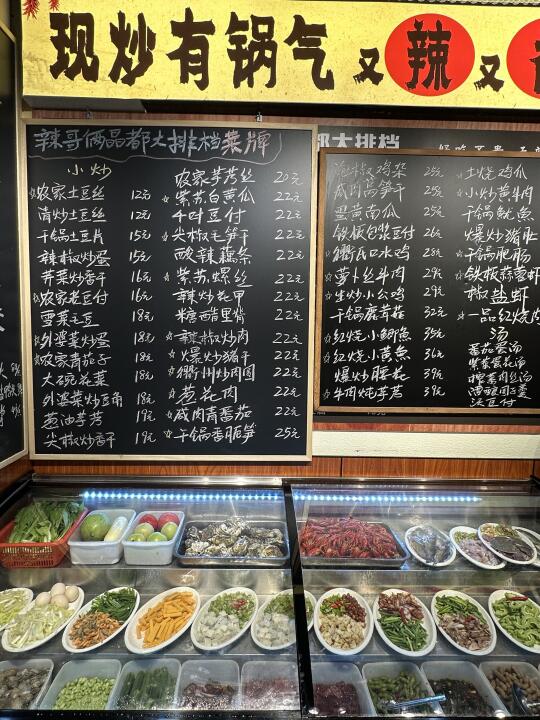 现炒有锅气又辣又
辣哥俩品都大排档菜牌
小炒
☆农家土豆丝 12元
清炒土豆丝 12元
干锅土豆片 15元
辣椒炒蛋 15元
芹菜炒香干 16元
☆农家老豆付 16元
雪菜毛豆 18元
外婆菜炒蛋 18元
☆农家青茄子 18元
大碗花菜 18元
外婆菜炒豆角 18元
葱油芋艿 19元
尖椒炒香干 19元
农家芋艿丝 20元
☆紫苏白黄瓜 22元
4叶豆付 22元
☆尖椒毛笋干 22元
酸辣藕条 22元
☆紫苏螺丝 22元
辣炒花甲 22元
糖醋里脊 22元
☆辣椒炒肉 22元
☆爆炒猪干 22元
☆衢州炒肉圆 22元
☆葱花肉 22元
☆咸肉青番茄 22元
☆干锅香脆笋 25元
都大排档
泡椒鸡杂 25元
咸肉莴笋干 25元
蛋黄南瓜 25元
铁板包浆豆付 26元
☆衢氏口水鸡 28元
☆萝卜丝牛肉 29元
☆生炒小公鸡 29元
干锅鹿茸菇 32元
☆红烧小鲫鱼 35元
☆红烧小黄鱼 38元
爆炒腰花 39元
☆牛肉炖芋艿 39元
☆土烧鸡爪
☆小炒黄牛肉
☆干锅鱿鱼
☆爆炒猪肚
☆干锅肥肠
☆铁板蒜蓉虾
椒盐虾
☆一品红烧肉
汤
番茄蛋汤
紫菜蛋花汤
榨菜肉丝汤